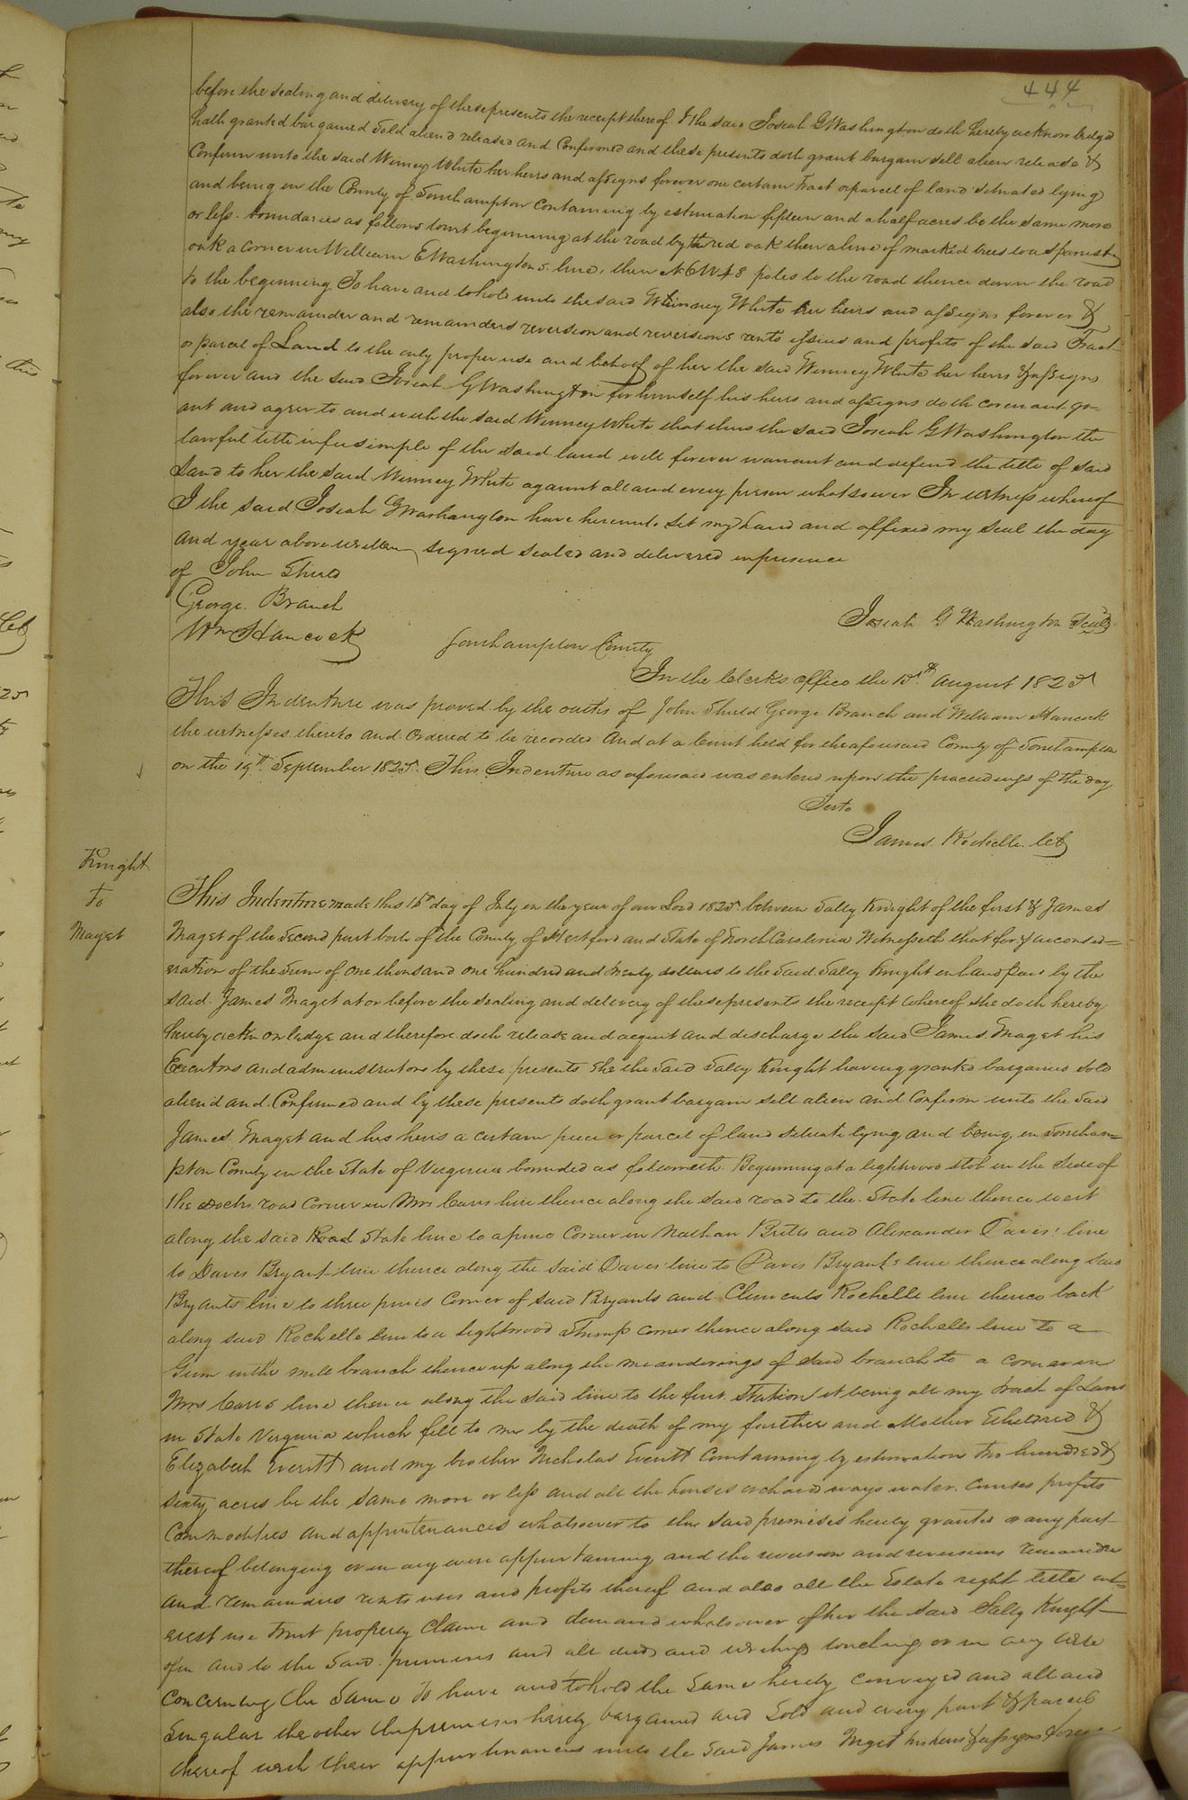 444
before the sealing and delivery of these presents the receipt thereof I the said Josiah G Washington doth hereby acknowledged
hath granted bargained Sold aliend released and Confirmed and these presents doth grant bargain sell alien release &
Confirm unto the said Winney White her heirs and assigns forever one certain Tract or parcel of land situated lying
and being in the County of Southampton Containing by estimation fifteen and a half acres be the same more
or less boundaries as follows towit beginning at the road by the red oak then a line of marked trees to a Spanish
oak a corner in William E Washingtons line, then N 6 W 48 poles to the road thence down the road
to the beginning To have and to hold unto the said Whinney White her heirs and assigns forever &
also the remainder and remainders reversion and reversions rents issues and profits of the said Tract
or parcel of Land to the only proper use and behoof of her the said Winney White her heirs & assigns
forever and the said Josiah G Washington for himself his heirs and assigns doth covenant gr-
ant and agree to and with the said Winney White that the said Josiah G Washington the
lawful title in fee simple of the said land will forever warrant and defend the title of said
Land to her the said Winney White against all and every person whatsoever In witness whereof
I the said Josiah G Washington have hereunto Set my hand and affixed my Seal the day
and year above written signed sealed and delivered in presence
of John Thurd
George. Branch
Wm Hancock
Josiah G Washington Seal
Southampton County
In the Clerks office the 15th August 1825
This Indenture was proved by the oaths of John Thurd George Branch and William Hancock
the witnesses thereto and Ordered to be recorded And at a Court held for the aforesaid County of Southampton
on the 19th September 1825. This Indenture as aforesaid was entered upon the proceedings of the day
Teste
James Rochelle Clk
Knight
To
Maget
This Indenture made this 15th day of July in the year of our Lord 1825 between Sally Knight of the first & James
Maget of the Second part both of the County of Hertford and State of North Carolina Witnesseth that for & in consid=
eration of the Sum of one thousand one hundred and twenty dollars to the Said Sally Knight in hand paid by the
said James Maget at or before the sealing and delivery of these presents the receipt whereof she doth hereby
hereby acknowledge and therefore doth release and acquit and discharge the said James Maget his
Executors and administrators by these presents She the Said Sally Knight having granted bargained Sold
aliend and Confirmed and by these presents doth grant bargain sell alien and Confirm unto the Said
James Maget and his heirs a certain piece or parcel of land situate lying and being in Southam=
pton County in the State of Virginia bounded as followeth Beginning at a lightwood stob in the Side of
the road Corner in Mrs Carrs line thence along the said road to the State line thence west
along the said Road State line to a pine Corner in Nathan Britts and Alexander Daves' line
to Daves Bryant line thence along the said Daves' line to Daves Bryants line thence along said
Bryants line to three pines Corner of said Bryants and Clements Rochells line thence back
along said Rochells line to a lightwood Stump corner thence along said Rochells line to a
Gum in the mile branch thence up along the meanderings of said branch to a corner in
Mrs Carrs line thence along the said line to the first Station it being all my tract of Land
in State Virginia which fell to me by the death of my farther and Mother Etheldred &
Elizabeth Everitt and my brother Nicholas Everitt Containing by estimation two hundred &
sixty acres be the same more or less and all the houses orchard ways water. Courses profits
Commodities and appurtenances whatsoever to the said premises hereby granted or any part
thereof belonging or in any wise appurtaining and the reversion and reversions remainder
and remainders rents uses and profits thereof and also all the Estate right title int=
erest use trust property Claim and demand whatsoever of her the said Sally Knight
of in and to the Said premises and all deeds and writings touching or in any wise
Concerning the Same To have and to hold the Same hereby conveyed and all and
Singular the other the premises hereby bargained and Sold and every part & parcel
thereof with their appurtenances unto the Said James Maget his heirs & assigns forever